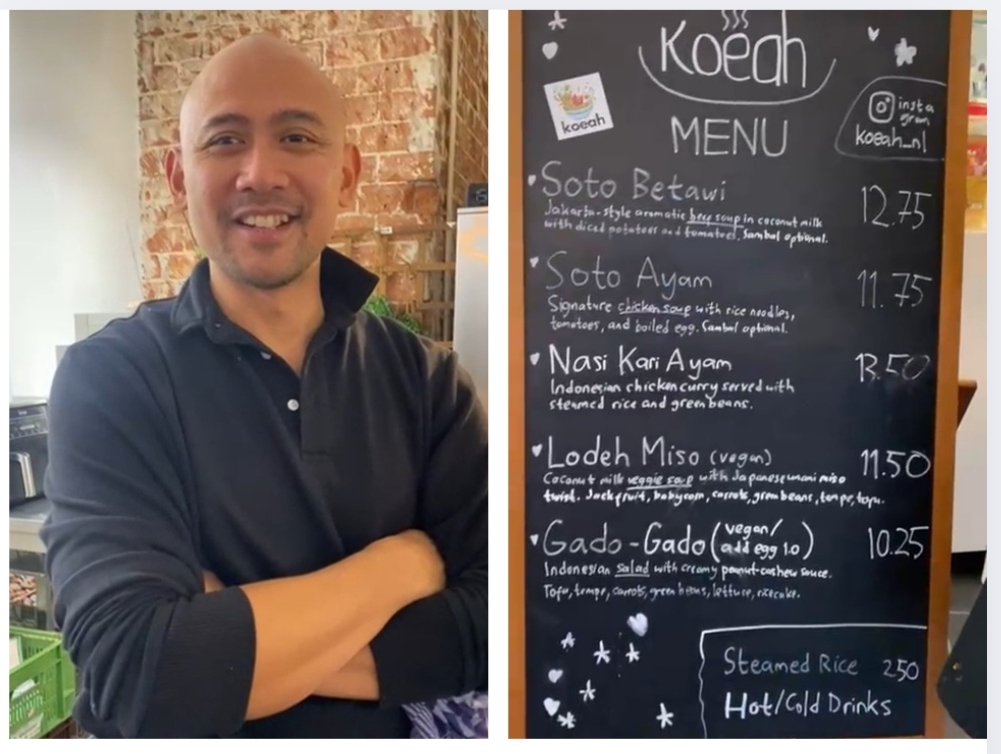 Koeah
koeah
insta
gram
koeah_nl
MENU
Soto Betawi 12.75
Jakarta-style aromatic beef soup in coconut milk
with diced potatoes and tomatoes. Sambal optional.
Soto Ayam 11.75
Signature chicken soup with rice noodles,
tomatoes, and boiled egg. Sambal optional.
Nasi Kari Ayam 13.50
Indonesian chicken curry served with
steamed rice and green beans.
Lodeh Miso (vegan) 11.50
Coconut milk veggie soup with Japanese umami miso
twist. Jackfruit, babycorn, carrots, green beans, tempe, tofu.
Gado-Gado (vegan/ add egg 1.0) 10.25
Indonesian salad with creamy peanut-cashew sauce.
Tofu, tempe, carrots, green beans, lettuce, ricecake.
Steamed Rice 2.50
Hot/Cold Drinks